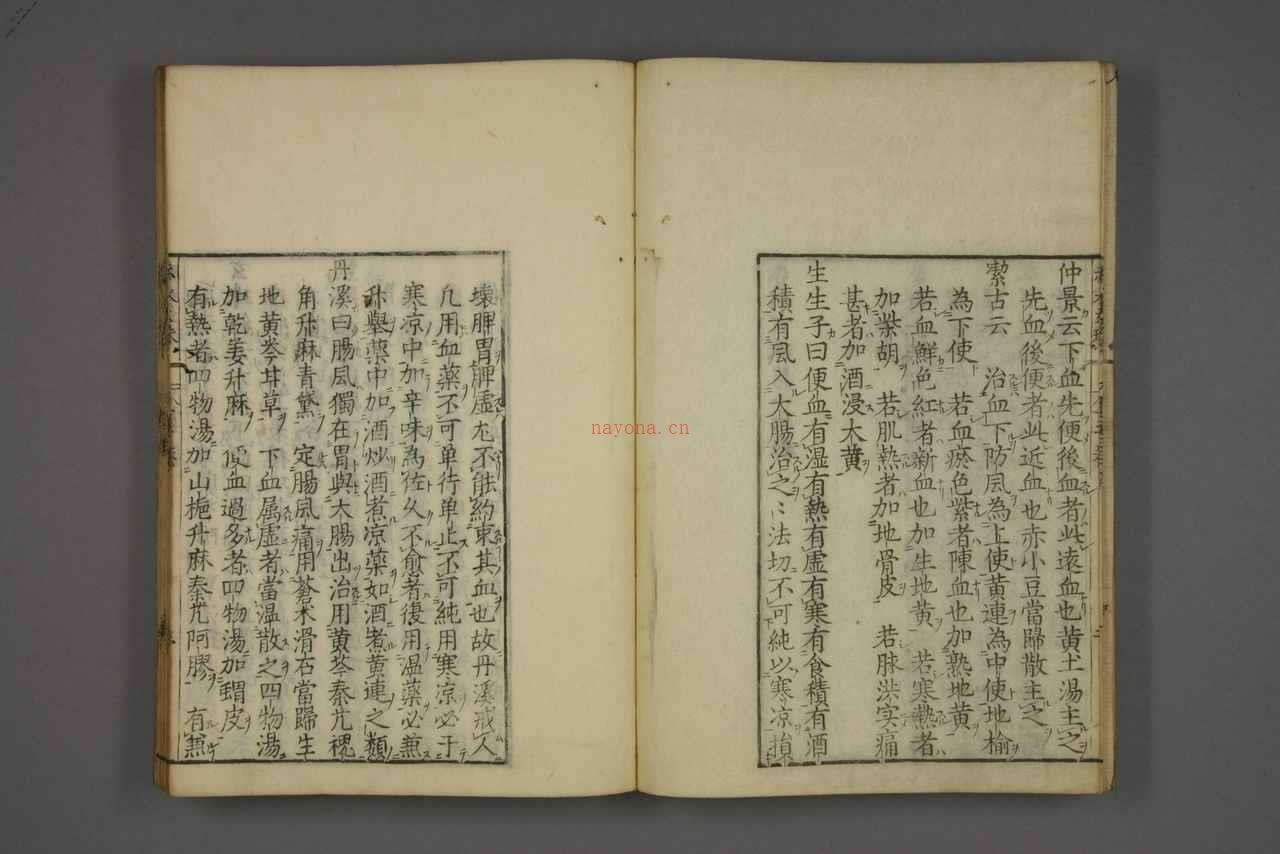 仲景云下血先便後血者此遠血也黃土湯主之
先血後便者此近血也赤小豆當歸散主之
潔古云　治血下防風為上使黃連為中使地榆
為下使　若血瘀色紫者陳血也加熟地黃
若血鮮色紅者新血也加生地黃　若寒熱者
加柴胡　若肌熱者加地骨皮　若脉洪实痛
甚者加酒浸大黃
生生子曰便血有湿有熱有虚有寒有食積有酒
積有風入大腸治之〻法切不可純以寒凉損
壊脾胃脾虚尤不能約束其血也故丹溪戒人
凡用血藥不可单行单止不可純用寒凉必于
寒凉中加辛味為佐久不愈者後用温藥必兼
升舉藥中加酒炒酒煮凉藥如酒煮黄連之類
丹溪曰腸風獨在胃與大腸出治用黄芩秦艽槐
角升麻青黛　定腸風痛用蒼朮滑石當歸生
地黄芩甘草　下血属虚者當温散之四物湯
加乾姜升麻　便血過多者四物湯加蝟皮
有熱者四物湯加山梔升麻秦艽阿膠　有兼
nayona.cn